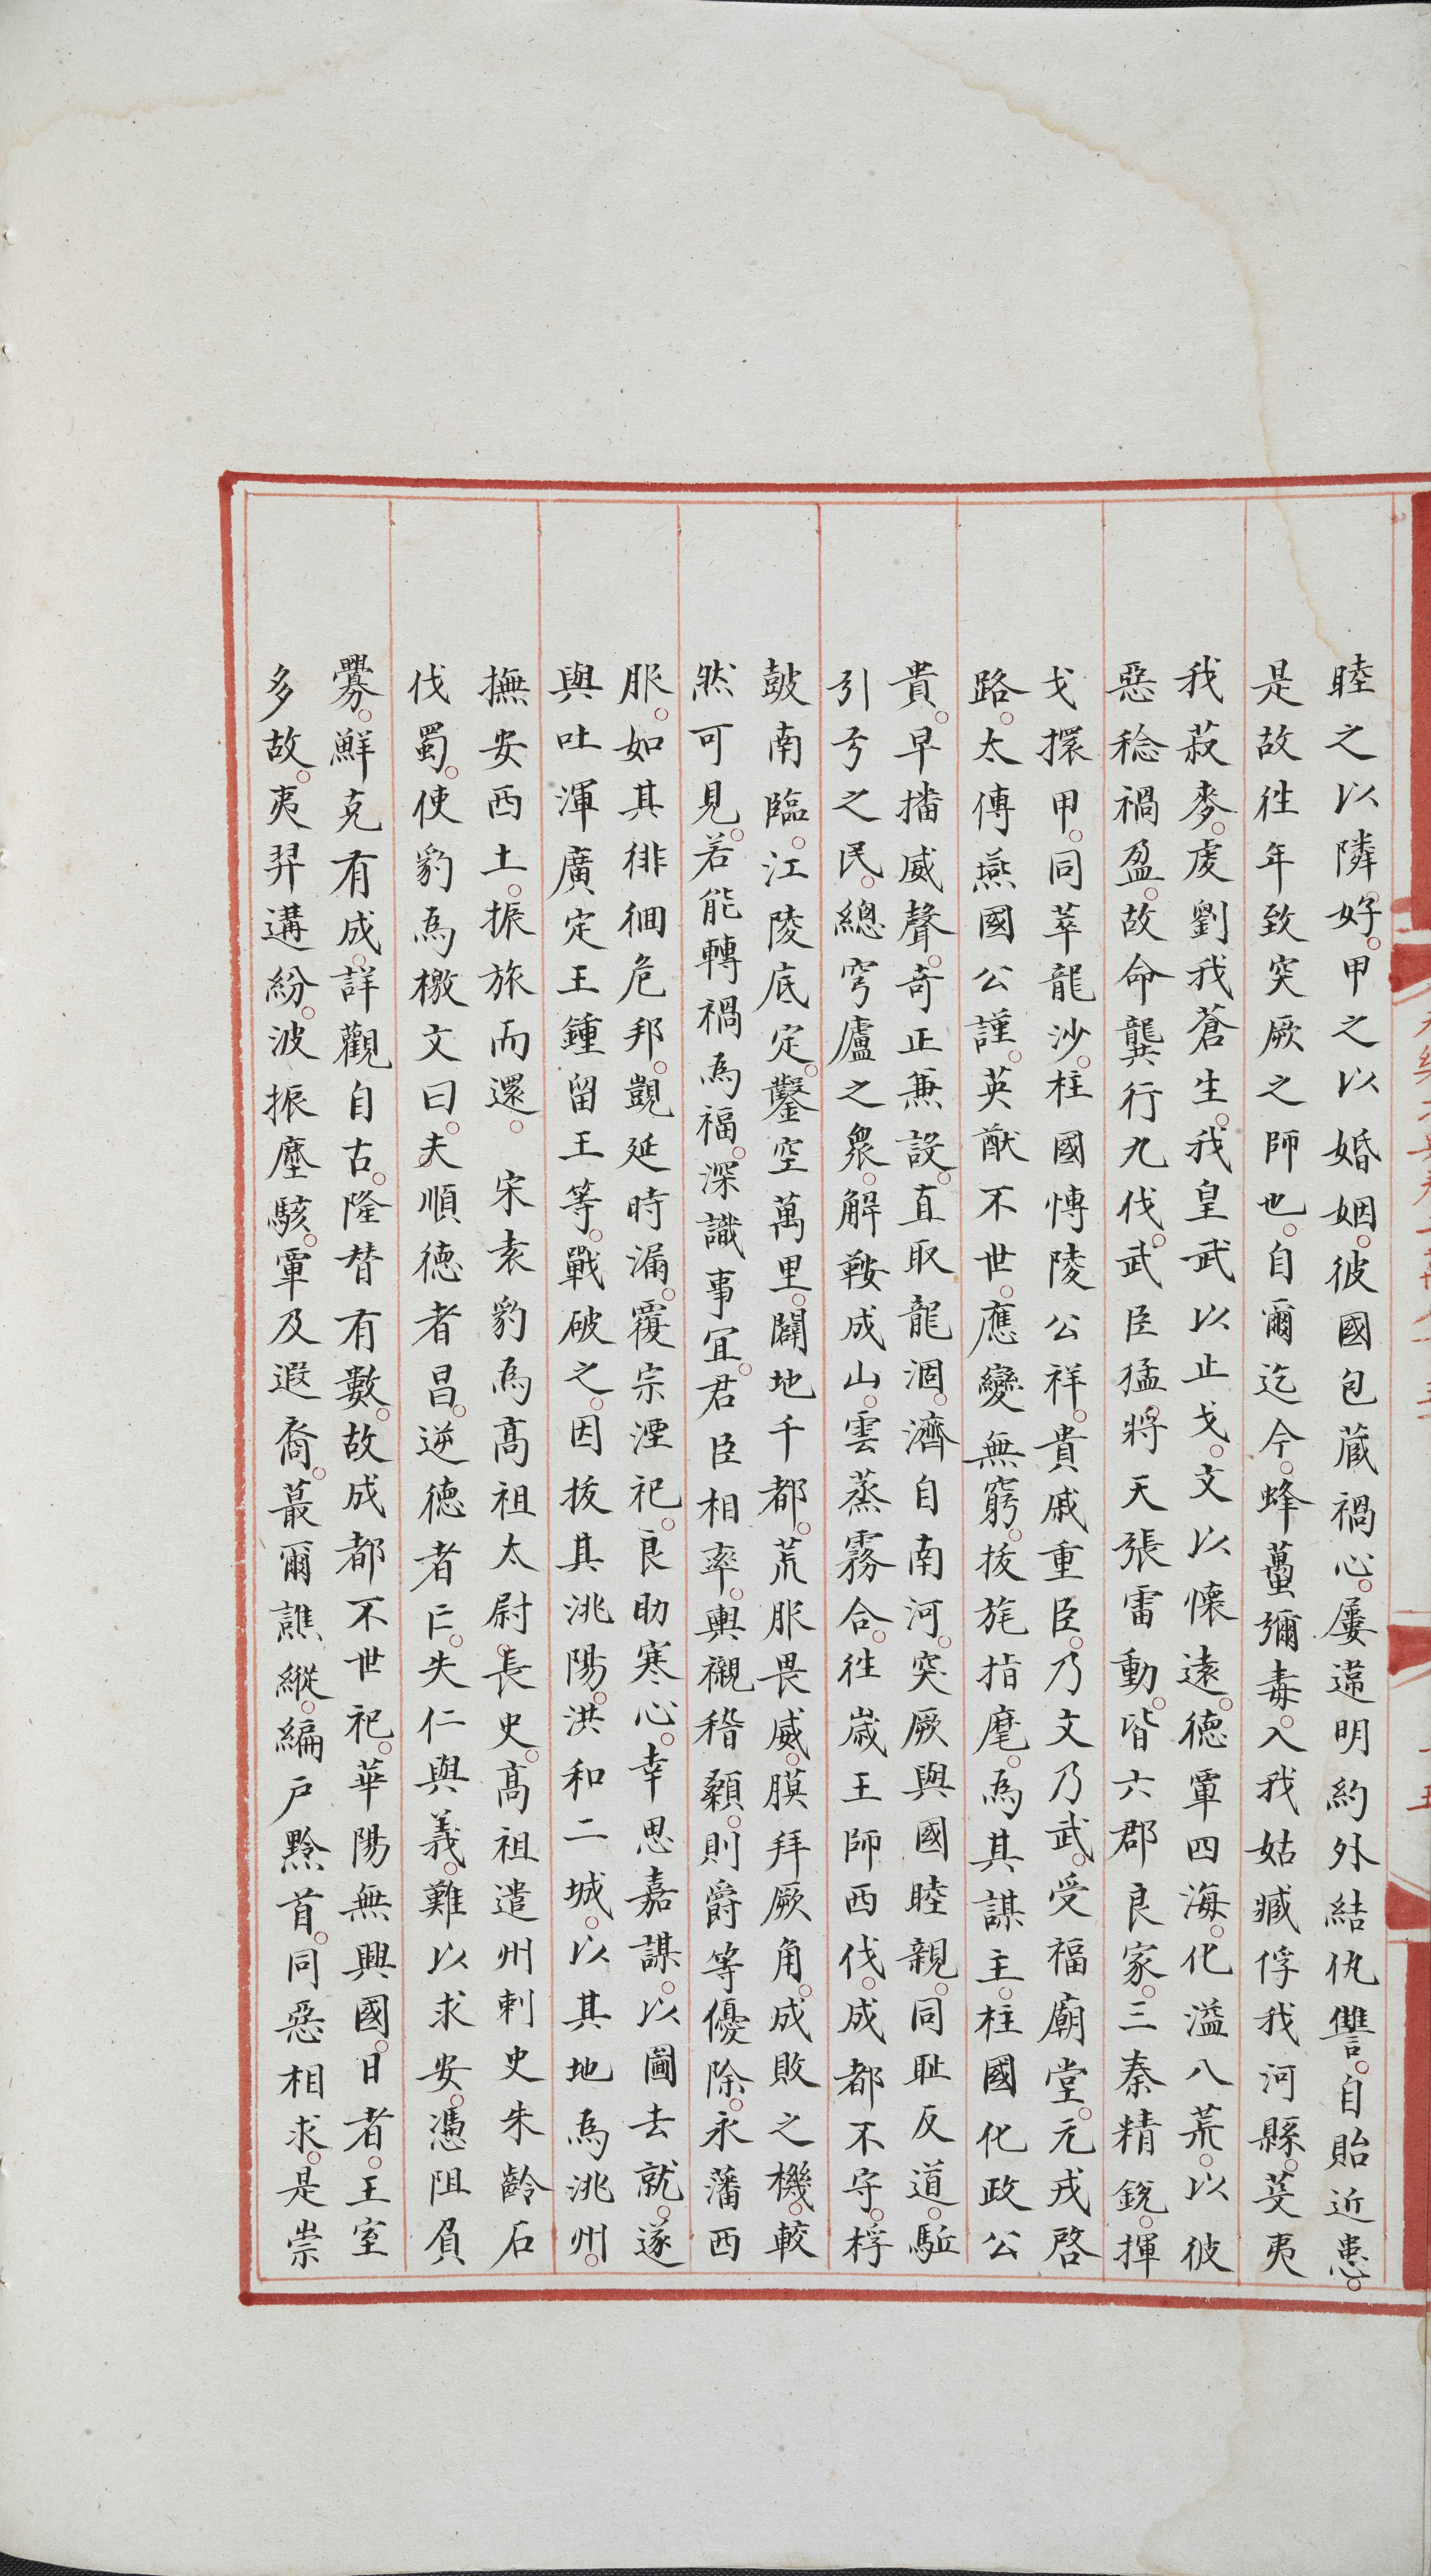 睦之以隣好甲之以婚姻彼國包蔵禍心屢違明約外結仇讐自貽近患
是故徃年致突厥之師也自爾迄今蜂蠆彌毒入我姑臧俘我河縣芟夷
我菽麥虔劉我蒼生我皇武以止戈文以懷遠德覃四海化溢八荒以彼
惡稔禍盈故命龔行九伐武臣猛將天張雷動皆六郡良家三秦精銳揮
戈擐甲同萃龍沙柱國愽陵公祥貴戚重臣乃文乃武受福廟堂元戎啓
路太傅燕國公謹英猷不世應變無窮抜旄指麾為其謀主柱國化政公
貴早播威聲奇正兼設直取龍涸濟自南河突厥與國睦親同耻反道駈
引弓之民總穹廬之衆解鞍成山雲蒸霧合徃歳王師西伐成都不守桴
鼓南臨江陵底定鑿空萬里闢地千都荒服畏威膜拜厥角成敗之機較
然可見若能轉禍為福深識事冝君臣相率輿櫬稽顙則爵等優除永藩西
服如其徘徊危邦覬延時漏覆宗湮祀良助寒心幸思嘉謀以圖去就遂
與吐渾廣定王鍾留王等戰破之因抜其洮陽洪和二城以其地為洮州
撫安西土振旅而還 宋袁豹為髙祖太尉長史髙祖遣州刺史朱齡石
伐蜀使豹為檄文曰夫順徳者昌逆德者亡失仁與義難以求安憑阻負
釁鮮克有成詳觀自古隆替有數故成都不世祀華陽無興國日者王室
多故夷羿遘紛波振塵駭覃及遐裔蕞爾譙縱編戸黔首同惡相求是崇